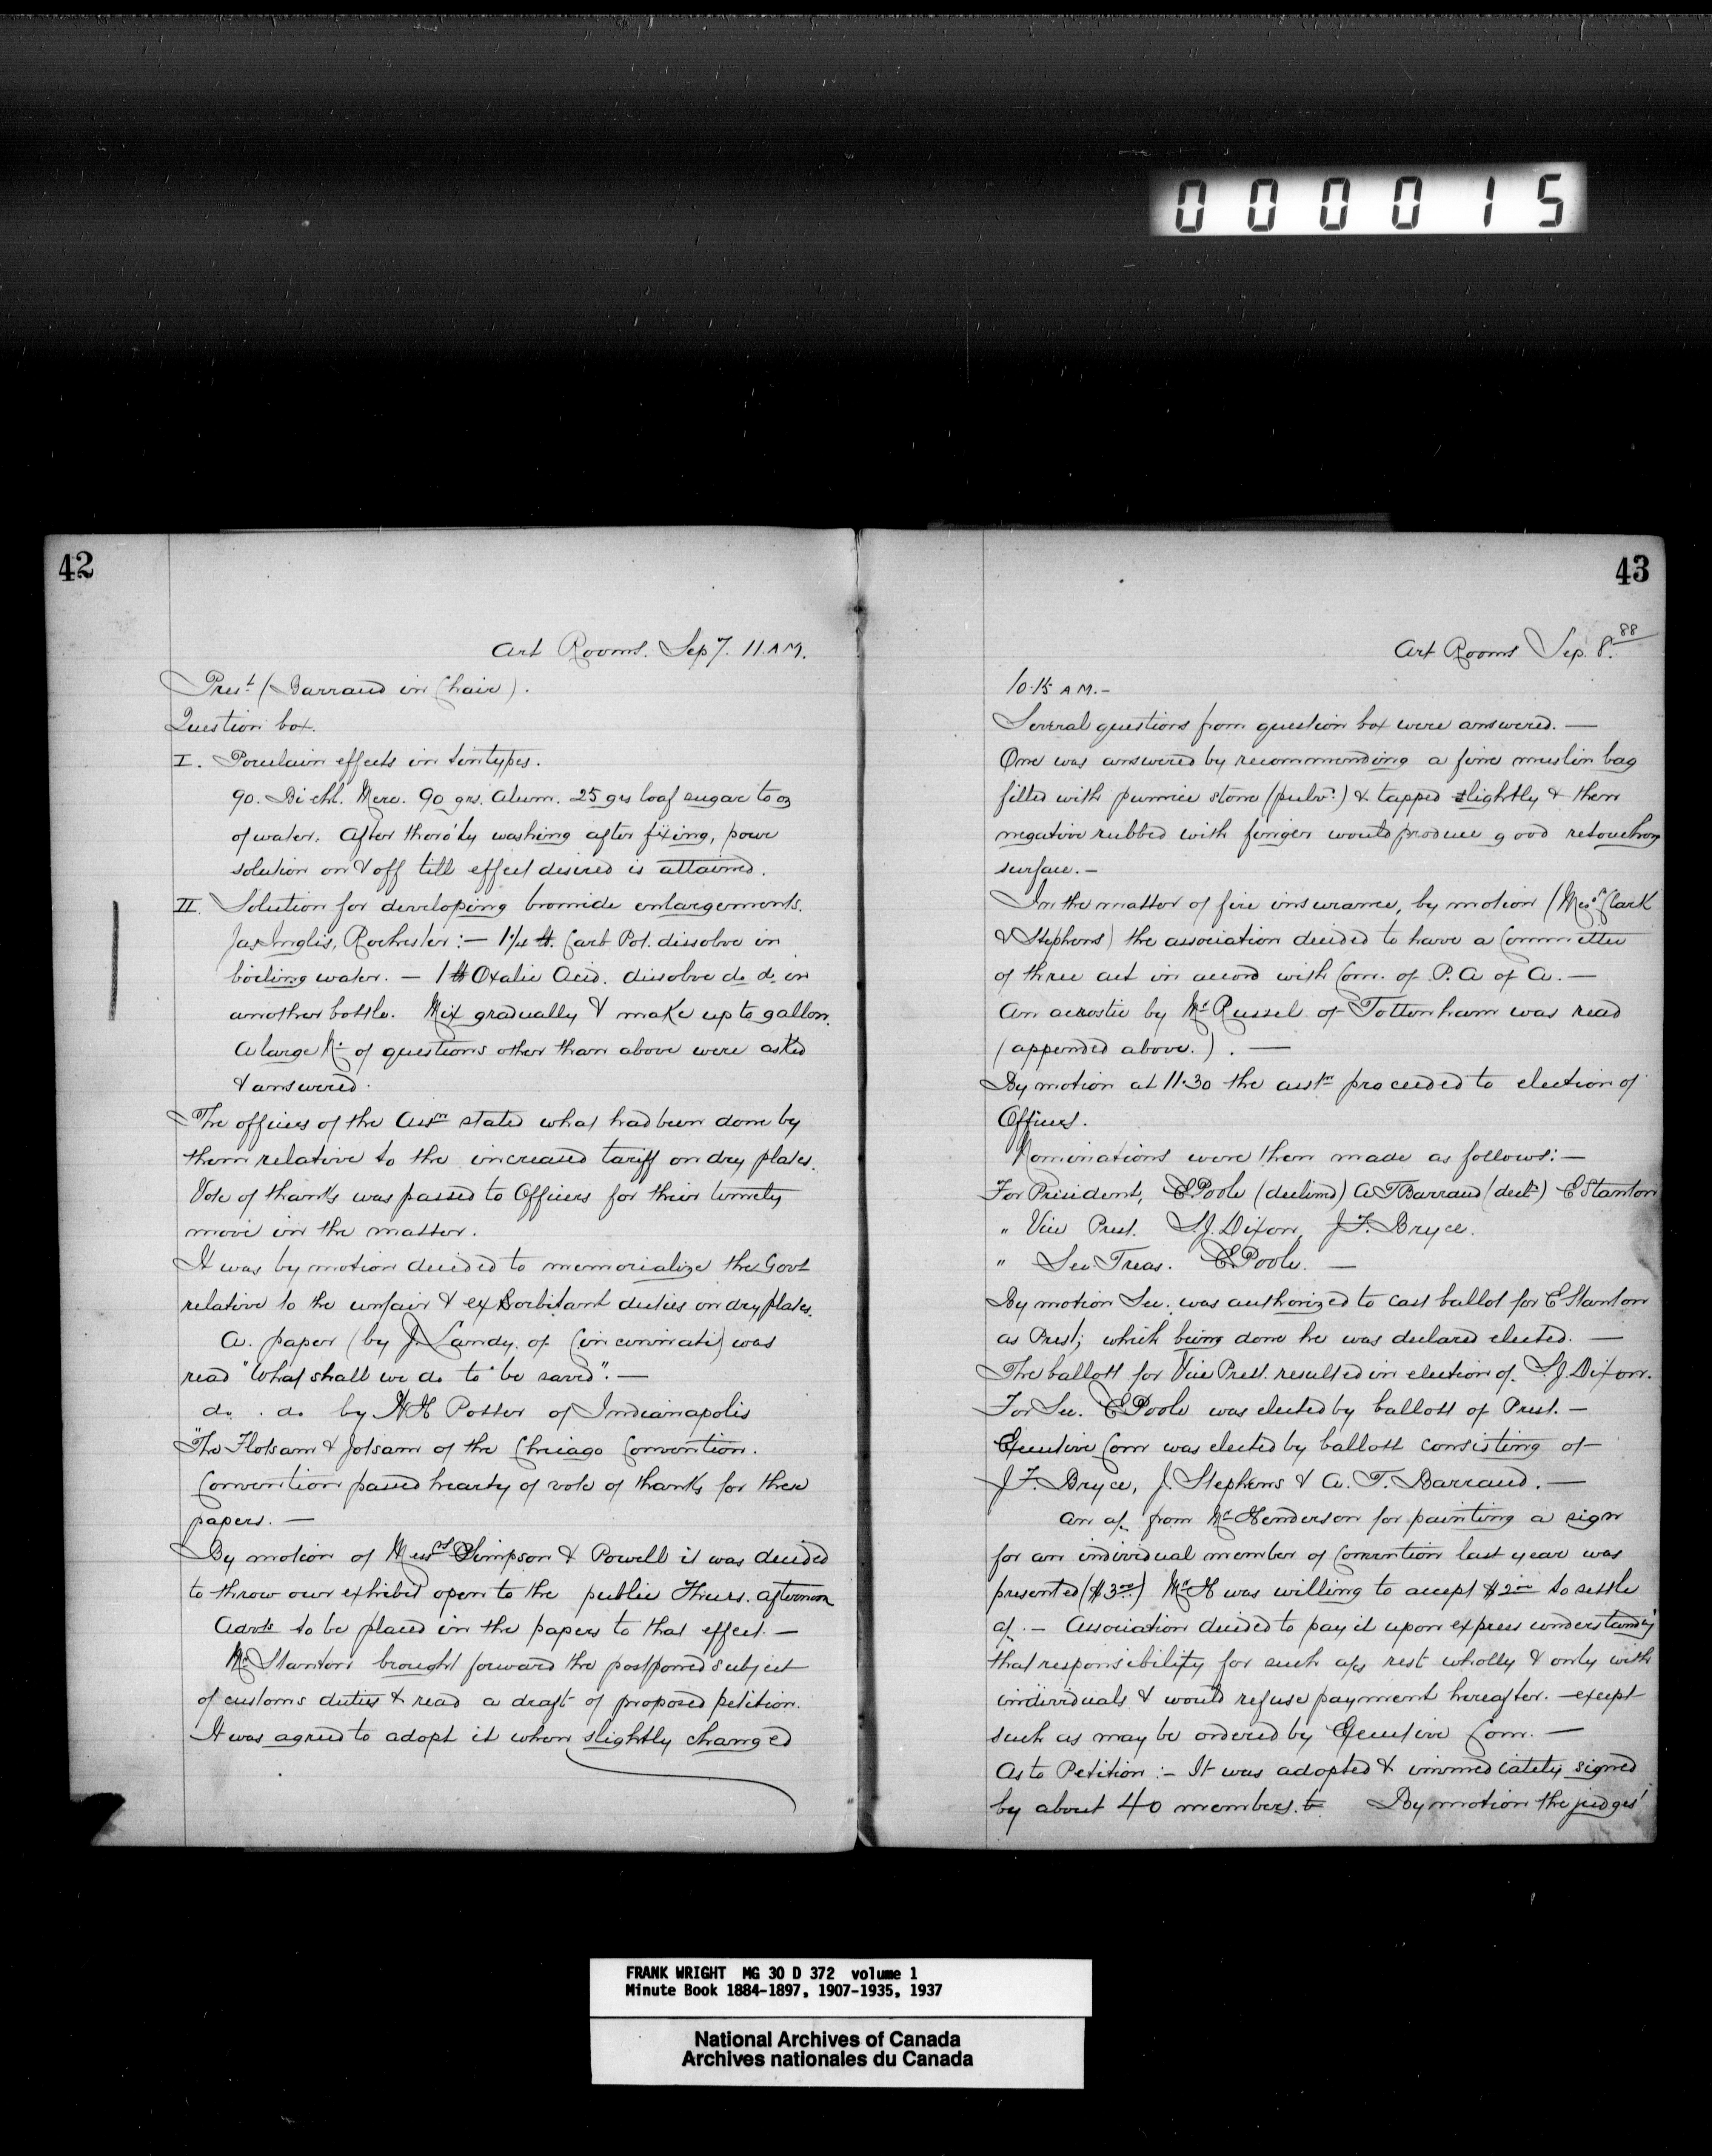 000015
42
Art Rooms. Sep 7. 11 A.M.
Prest (Barraud in Chair).
Question box.
I. Porcelain effects in tintypes.
90. Bi chl. Merc. 90 grs. Alum. 25 grs loaf sugar to oz
of water. After thoro'ly washing after fixing, pour
solution on & off till effect desired is attained.
II. Solution for developing bromide enlargements.
Jas Inglis, Rochester:— 1¼ lb. Carb Pot. dissolve in
boiling water. — 1 lb Oxalic Acid. dissolve do do in
another bottle. Mix gradually & make up to gallon.
A large No of questions other than above were asked
& answered.
The officers of the Assn stated what had been done by
them relative to the increased tariff on dry plates.
Vote of thanks was passed to Officers for their timely
move in the matter.
It was by motion decided to memorialize the Govt
relative to the unfair & exhorbitant duties on dry plates.
A. paper (by J. Landy of Cincinnati) was
read "What shall we do to be saved". —
do. do by H H Potter of Indianapolis
"The Flotsam & Jotsam of the Chicago Convention.
Convention passed hearty of vote of thanks for these
papers. —
By motion of Messrs Simpson & Powell it was decided
to throw our exhibit open to the public Thurs. afternoon
Advts to be placed in the papers to that effect. —
Mr Stanton brought forward the postponed subject
of customs duties & read a draft of proposed petition.
It was agreed to adopt it when slightly changed
43
Art Rooms Sep. 8. 88
10.15 A M. -
Several questions from question box were answered. —
One was answered by recommending a fine muslin bag
filled with pumice stone (pulvd) & tapped slightly & then
negative rubbed with finger would produce good retouching
surface. -
In the matter of fire insurance, by motion (Messrs Clark
& Stephens) the association decided to have a Committee
of three act in accord with Com. of P. A of A. —
An acrostic by Mr Russel of Tottenham was read
(appended above.). —
By motion at 11.30 the assn proceeded to election of
Officers.
Nominations were then made as follows: —
For President, E Poole (declined) A T Barraud (decld) E Stanton
" Vice Prest. S. J. Dixon, J. F. Bryce.
" Sec. Treas. E Poole. —
By motion Sec. was authorized to cast ballot for E Stanton
as Prest; which being done he was declared elected. —
The ballott for Vice Prest. resulted in election of S. J. Dixon.
For Sec. E Poole was elected by ballott of Prest. —
Executive Com was elected by ballott consisting of
J F. Bryce, J. Stephens & A. T. Barraud. —
An a/c from Mr Henderson for painting a sign
for an individual member of Convention last year was
presented ($3.00) Mr H was willing to accept $2.00 to settle
a/c. — Association decided to pay it upon express understanding
that responsibility for such a/cs rest wholly & only with
individuals & would refuse payment hereafter. — except
such as may be ordered by Executive Com. —
As to Petition :- It was adopted & immediately signed
by about 40 members. By motion the judges'
FRANK WRIGHT MG 30 D 372 volume 1
Minute Book 1884-1897, 1907-1935, 1937
National Archives of Canada
Archives nationales du Canada